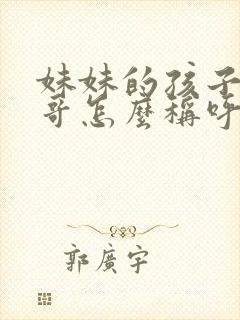 妹妹的孩子
哥怎麼稱呼
郭廣宇